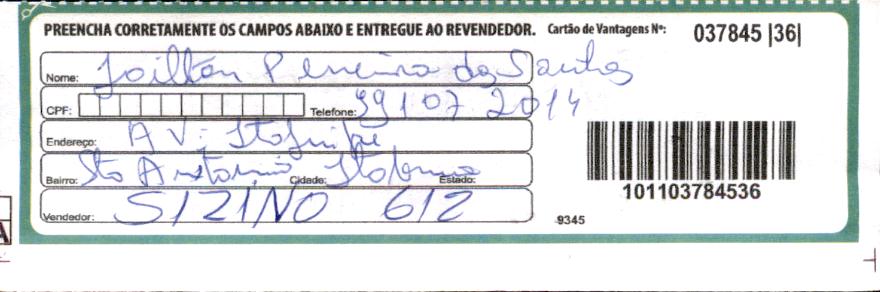 PREENCHA CORRETAMENTE OS CAMPOS ABAIXO E ENTREGUE AO REVENDEDOR. Cartão de Vantagens Nº: 037845 |36|
Nome: Joilton Pereira dos Santos
CPF: Telefone: 99107 2014
Endereço: AV:
Bairro: Sto Antonio Cidade: Itabuna Estado:
Vendedor: SIZINO 612
101103784536
9345
A